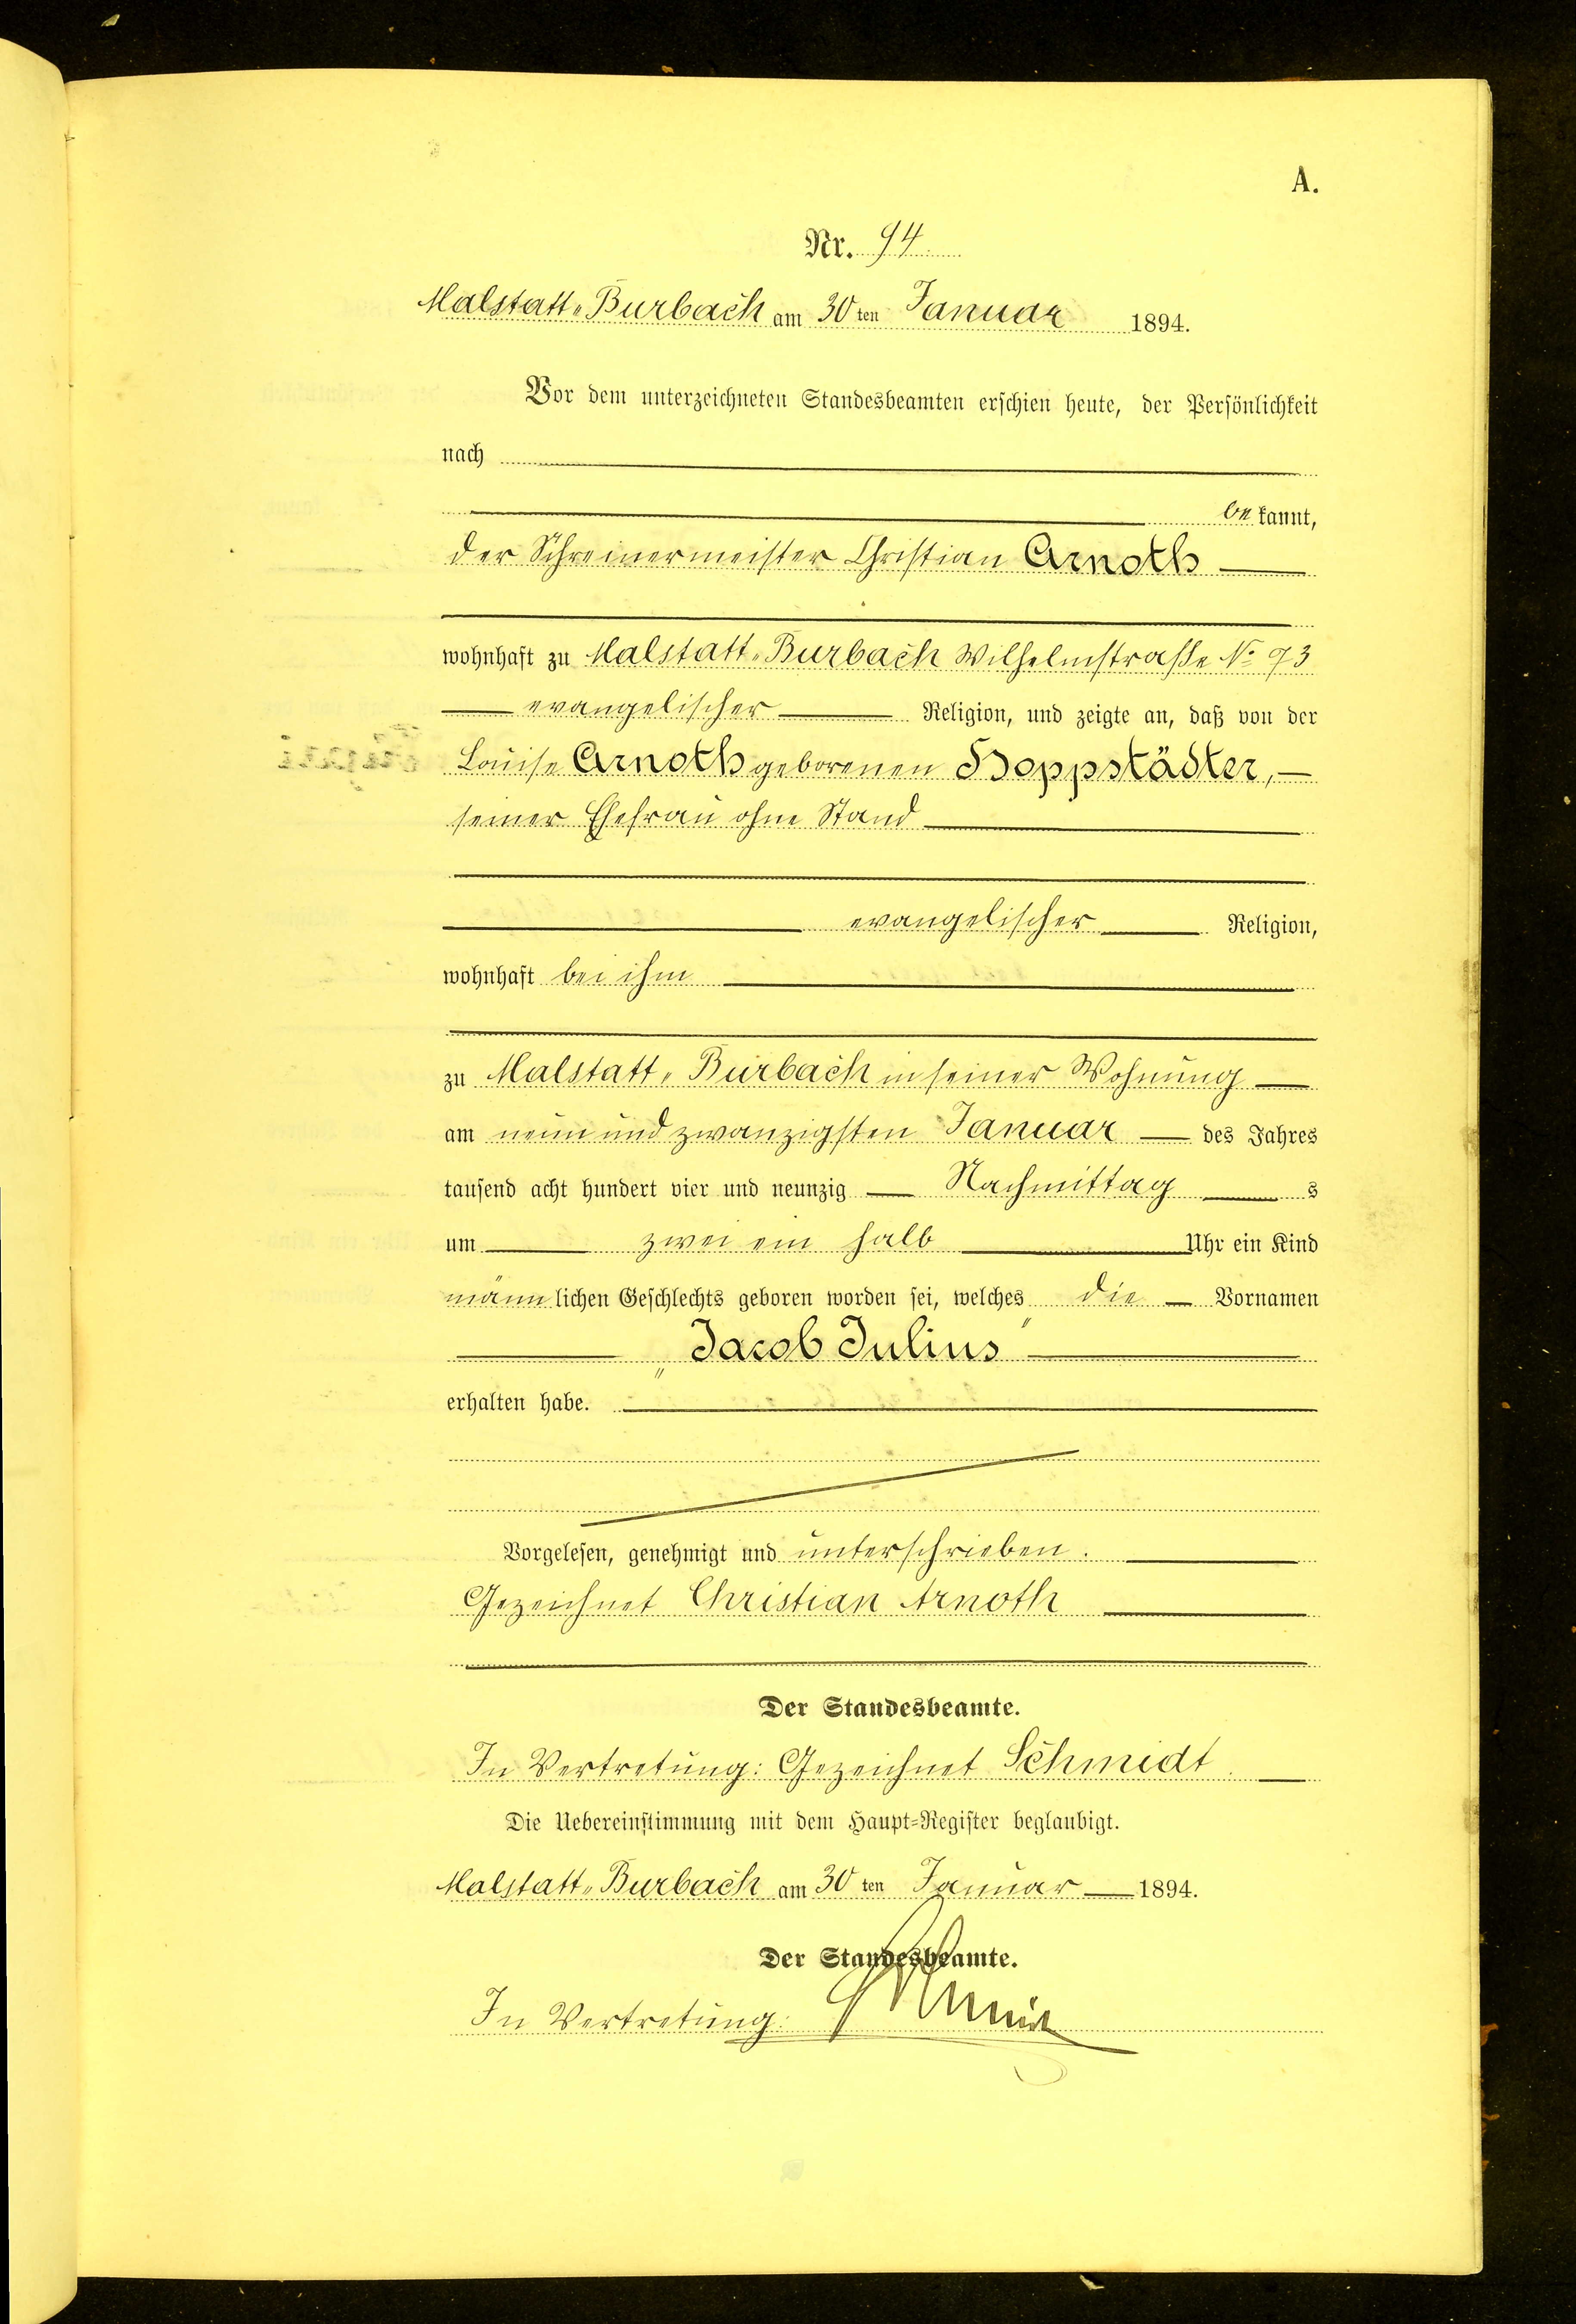 A.
Nr. 94
Malstatt-Burbach am 30 ten Januar 1894.
Vor dem unterzeichneten Standesbeamten erschien heute, der Persönlichkeit
nach
be kannt,
der Schreinermeister Christian Arnoth
wohnhaft zu Malstatt-Burbach Wilhelmstraße No 73
evangelischer Religion, und zeigte an, daß von der
Louise Arnoth geborenen Hoppstädter,
seiner Ehefrau ohne Stand
evangelischer Religion,
wohnhaft bei ihm
zu Malstatt-Burbach in seiner Wohnung
am neun und zwanzigsten Januar des Jahres
tausend acht hundert vier und neunzig Nachmittag s
um zwei ein halb Uhr ein Kind
männlichen Geschlechts geboren worden sei, welches die Vornamen
„Jacob Julius“
erhalten habe.
Vorgelesen, genehmigt und unterschrieben.
Gezeichnet Christian Arnoth
Der Standesbeamte.
In Vertretung: Gezeichnet Schmidt.
Die Uebereinstimmung mit dem Haupt-Register beglaubigt.
Malstatt-Burbach am 30 ten Januar 1894.
Der Standesbeamte.
In Vertretung: Schmidt